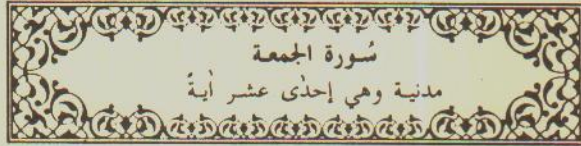 سُورة الجمعة
مدنية وهي إحدٰى عشر اٰيةً